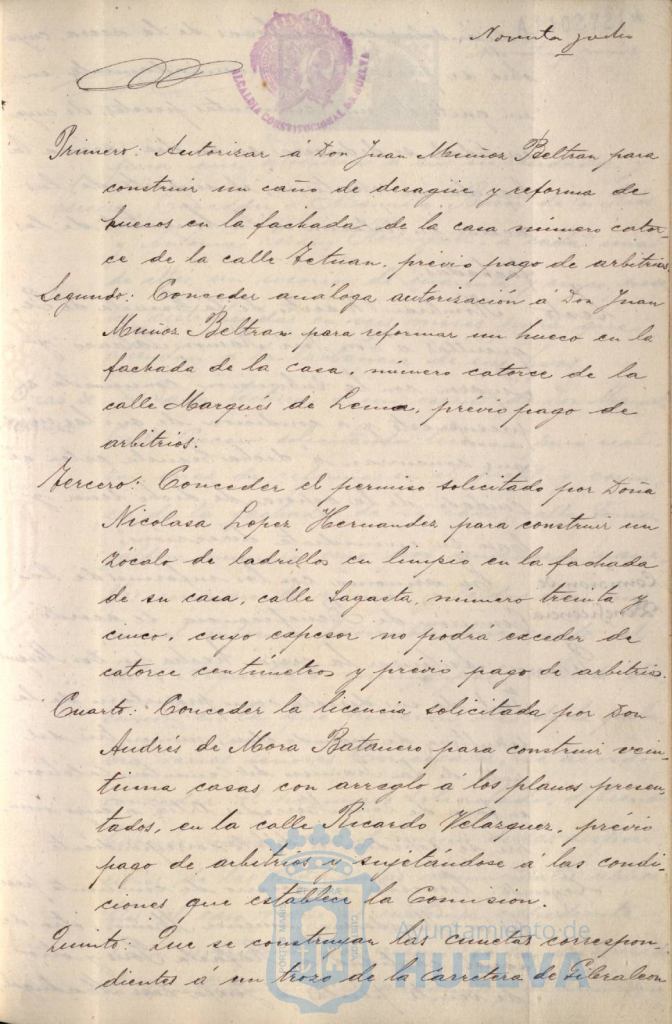 Noventa y ocho
ALCALDIA CONSTITUCIONAL DE HUELVA
Primero: Autorizar á Don Juan Muñoz Beltran para
construir un caño de desagüe y reforma de
huecos en la fachada de la casa número cator-
ce de la calle Tetuan, prévio pago de arbitrios.
Segundo: Conceder análoga autorización á Don Juan
Muñoz Beltran para reformar un hueco en la
fachada de la casa, número catorce de la
calle Marqués de Lema, prévio pago de
arbitrios.
Tercero: Conceder el permiso solicitado por Doña
Nicolasa Lopez Hernandez para construir un
zócalo de ladrillos en limpio en la fachada
de su casa, calle Sagasta, número treinta y
cinco, cuyo espesor no podrá exceder de
catorce centímetros y prévio pago de arbitrios.
Cuarto: Conceder la licencia solicitada por Don
Andrés de Mora Batanero para construir vein-
tiuna casas con arreglo á los planos presen-
tados, en la calle Ricardo Velazquez, prévio
pago de arbitrios y sujetándose á las condi-
ciones que establece la Comisión.
Quinto: Que se construyan las cunetas correspon-
dientes á un trozo de la Carretera de Gibraleon
Ayuntamiento de
HUELVA